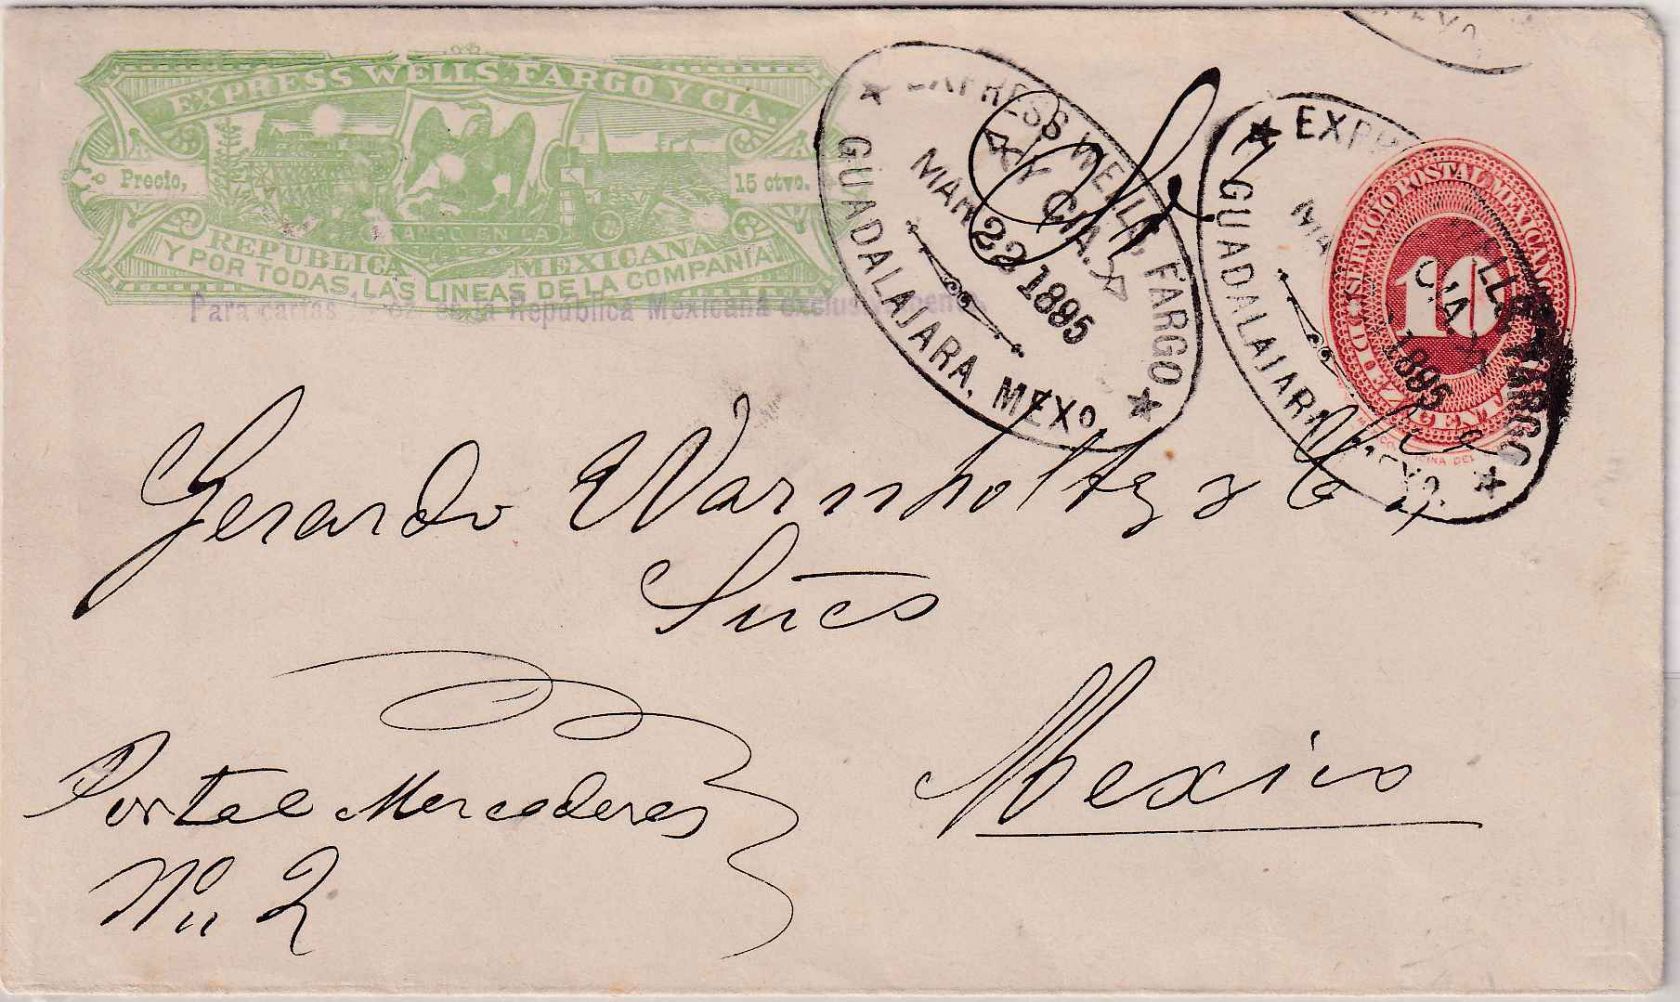 EXPRESS WELLS, FARGO Y CIA.
Precio,
15 ctvo.
FRANCO EN LA
REPUBLICA MEXICANA
Y POR TODAS, LAS LINEAS DE LA COMPAÑIA
Para cartas en la República Mexicana exclusivamente
EXPRESS WELLS, FARGO
Y CIA.
MAR 22 1895
GUADALAJARA, MEXO
EXPRESS WELLS FARGO
CIA
1895
GUADALAJARA MEXO.
SERVICIO POSTAL MEXICANO
10
DIEZ CENTAVOS
Gerardo Warnholtz y Ca
Sucs
Mexico
Portal Mercaderes
No 2